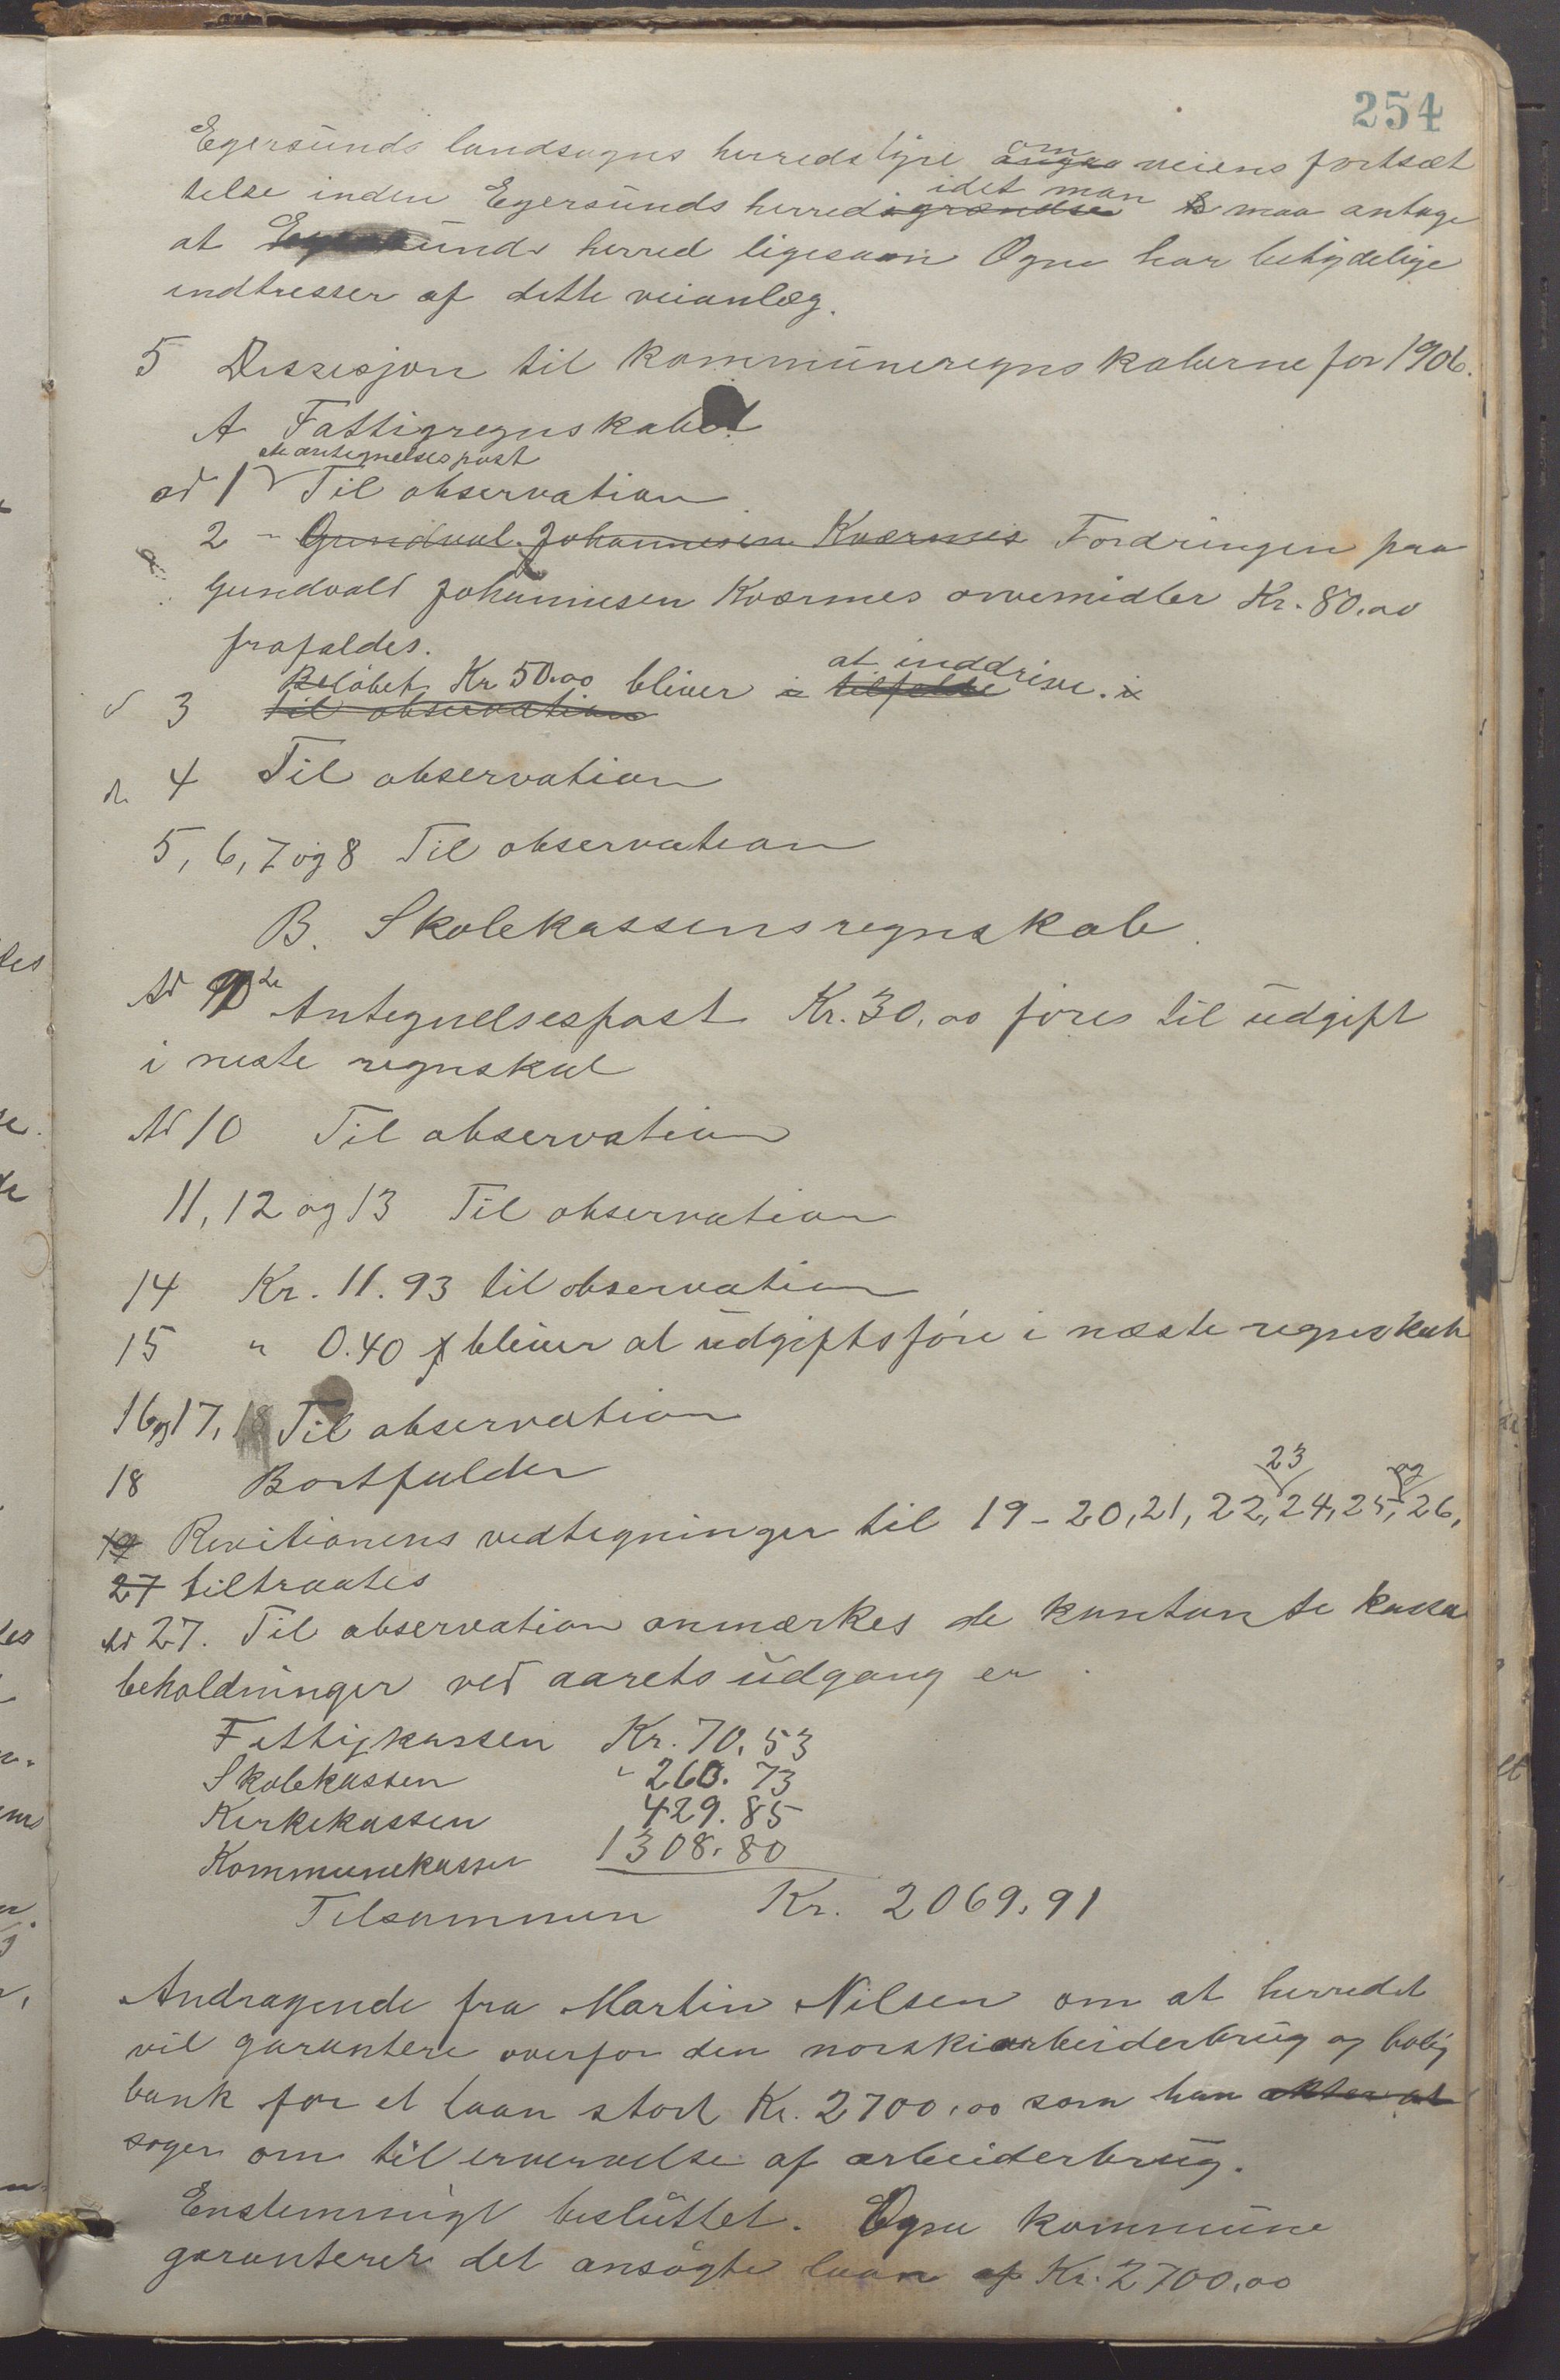 254
Egersunds landsogns herredstyre om angaa veiens fortsæt
telse inden Egersunds herredsgrændse idet man maa antage
at Egersunds herred ligesaavel Ogne har betydelige
indtresser af dette veianlæg.
5 Dessesjon til kommuneregnskaberne for 1906.
A Fattigregnskabet
ad 1 ste antegnelsespost Til observation
2 - Gundval Johannesen Kværmes Fordringen paa
Gundvald Johannesen Kværmes arvemidler Kr. 80.00
frafaldes.
3 Til observation Beløbet Kr 50.00 bliver i tilfælde at inddrive.
4 Til observation
5, 6, 7 og 8 Til observation
B. Skolekassensregnskab.
Ad 9de Antegnelsespost Kr. 30.00 føres til udgift
i neste regnskab
Ad 10 Til observation
11, 12 og 13 Til observation
14 Kr. 11.93 til observation
15 " 0.40 bliver at udgiftsføre i næste regnskab
16 og 17, 18 Til observation
18 Bortfalder
19 Revitionens vedtegninger til 19 - 20, 21, 22, 23 24, 25, og 26,
27 tiltraates
Ad 27. Til observation anmærkes de kontante kassa
beholdninger ved aarets udgang er
Fattigkassen Kr. 70.53
Skolekassen " 260.73
Kerkekassen 429.85
Kommunekassen 1308.80
Tilsammen Kr. 2069.91
Andragende fra Martin Nilsen om at herredet
vil garantere overfor den norske arbeiderbrug og bolig
bank for et laan stort Kr. 2700.00 som han akter at
søger om til ervervelse af arbeiderbrug.
Enstemmigt besluttet. Ogne kommune
garanterer det ansøgte laan af Kr. 2700.00